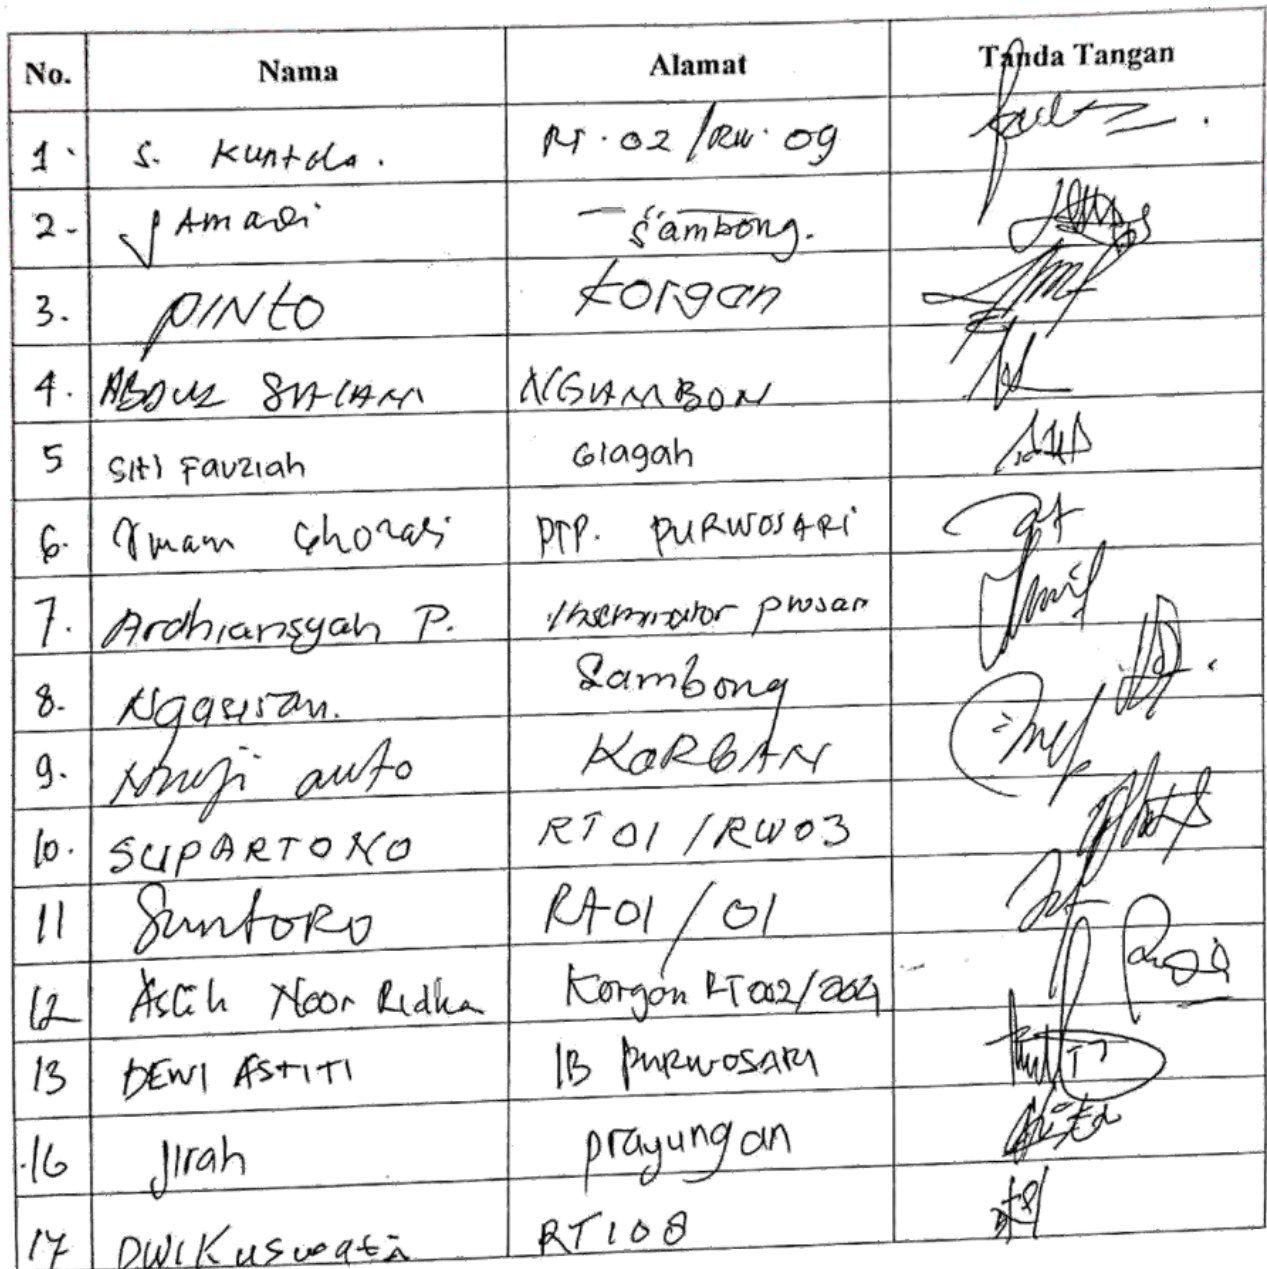 No. Nama Alamat Tanda Tangan
1. S. Kuntola. RT. 02/RW. 09
2. J Amari Sambong.
3. PINTO Korgan
4. ABDUL SALAM NGLAMBON
5 Siti Fauziah Glagah
6. Imam Ghozali PTP. PURWOSARI
7. Ardhiansyah P. Inseminator
8. Ngasiran. Sambong
9. auto KORGAN
10. SUPARTONO RT01/RW03
11 SuntoRo RT01/01
12 Asih Noor Ridha Korgan
13 DEWI ASTITI IB PURWOSARI
16 Jirah prayungan
17 DWI Kuswati RT108